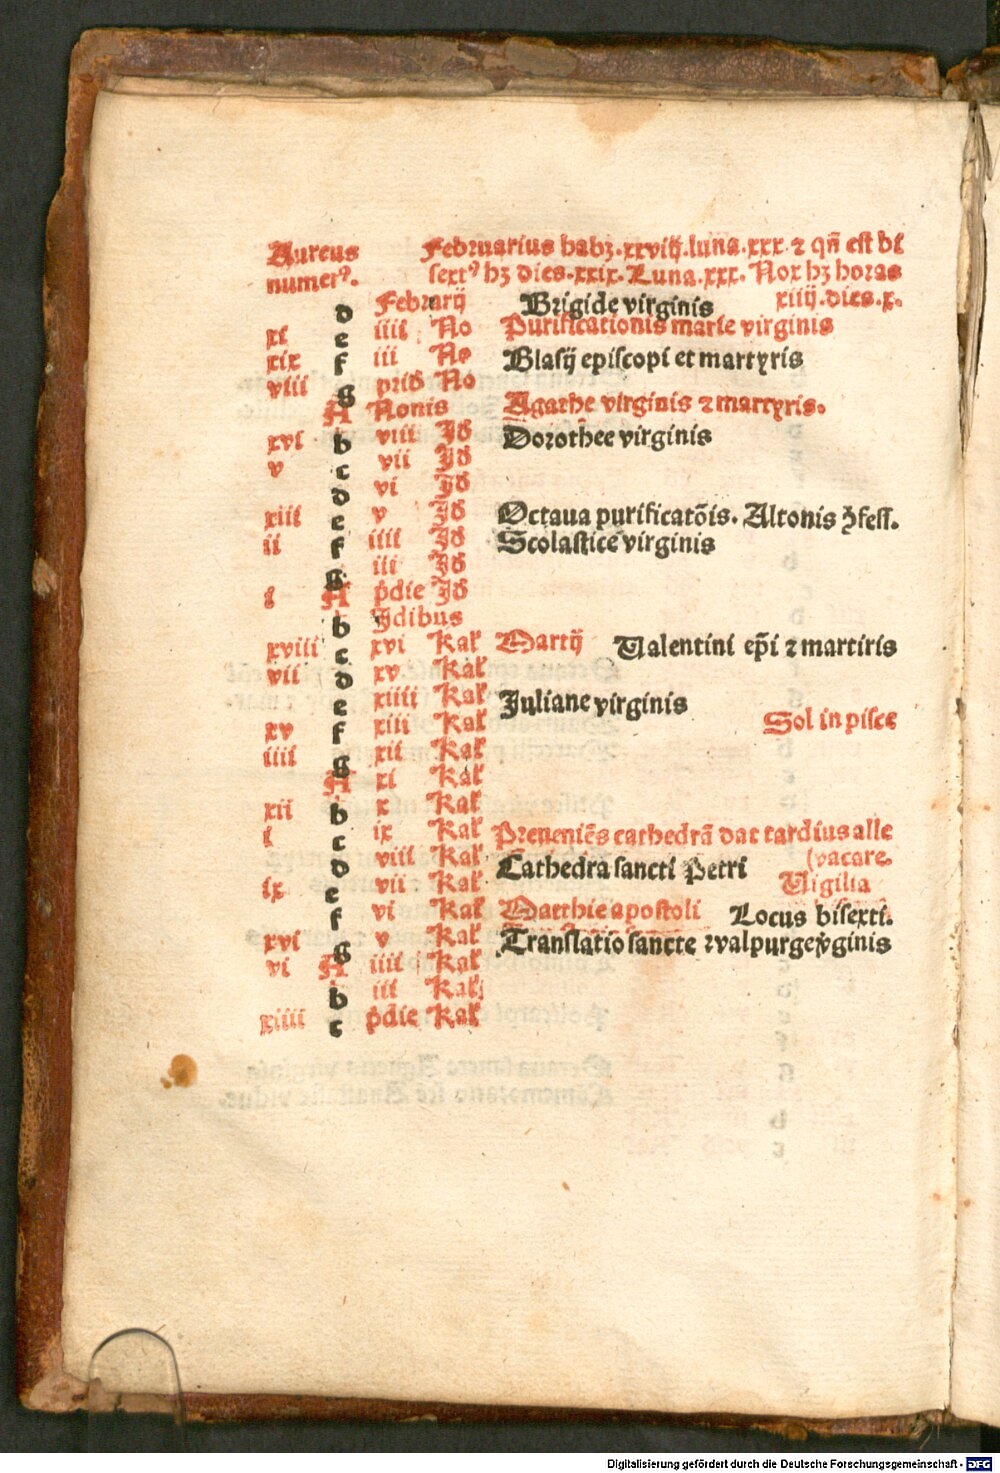 Aureus Februarius habꝫ·xxviij·luna·xxx·⁊ qñ est bi
numer⁹. sext⁹ hꝫ dies·xxix·Luna·xxx· Nox hꝫ horas
d Februarij Brigide virginis xiiij·dies·x·
xi e iiii No Purificationis marie virginis
xix f iii No Blasij episcopi et martyris
viii g prid No
A Nonis Agathe virginis ⁊ martyris.
xvi b viii Id Dorothee virginis
v c vii Id
d vi Id
xiii e v Id Octaua purificatõis. Altonis ꝯfess.
ii f iiii Id Scolastice virginis
g iii Id
i A pͥdie Id
b Idibus
xviii c xvi Kal Martij Valentini ep̄i ⁊ martiris
vii d xv Kal
e xiiii Kal Juliane virginis
xv f xiii Kal Sol in pisce
iiii g xii Kal
A xi Kal
xii b x Kal
i c ix Kal Preueniẽs cathedrã dat tardius alle
d viii Kal Cathedra sancti Petri (vacare.
ix e vii Kal Vigilia
f vi Kal Matthie apostoli Locus bisexti.
xvi g v Kal Translatio sancte walpurge v̓ginis
vi A iiii Kal
b iii Kal
xiiii c pͥdie Kal
Digitalisierung gefördert durch die Deutsche Forschungsgemeinschaft - DFG